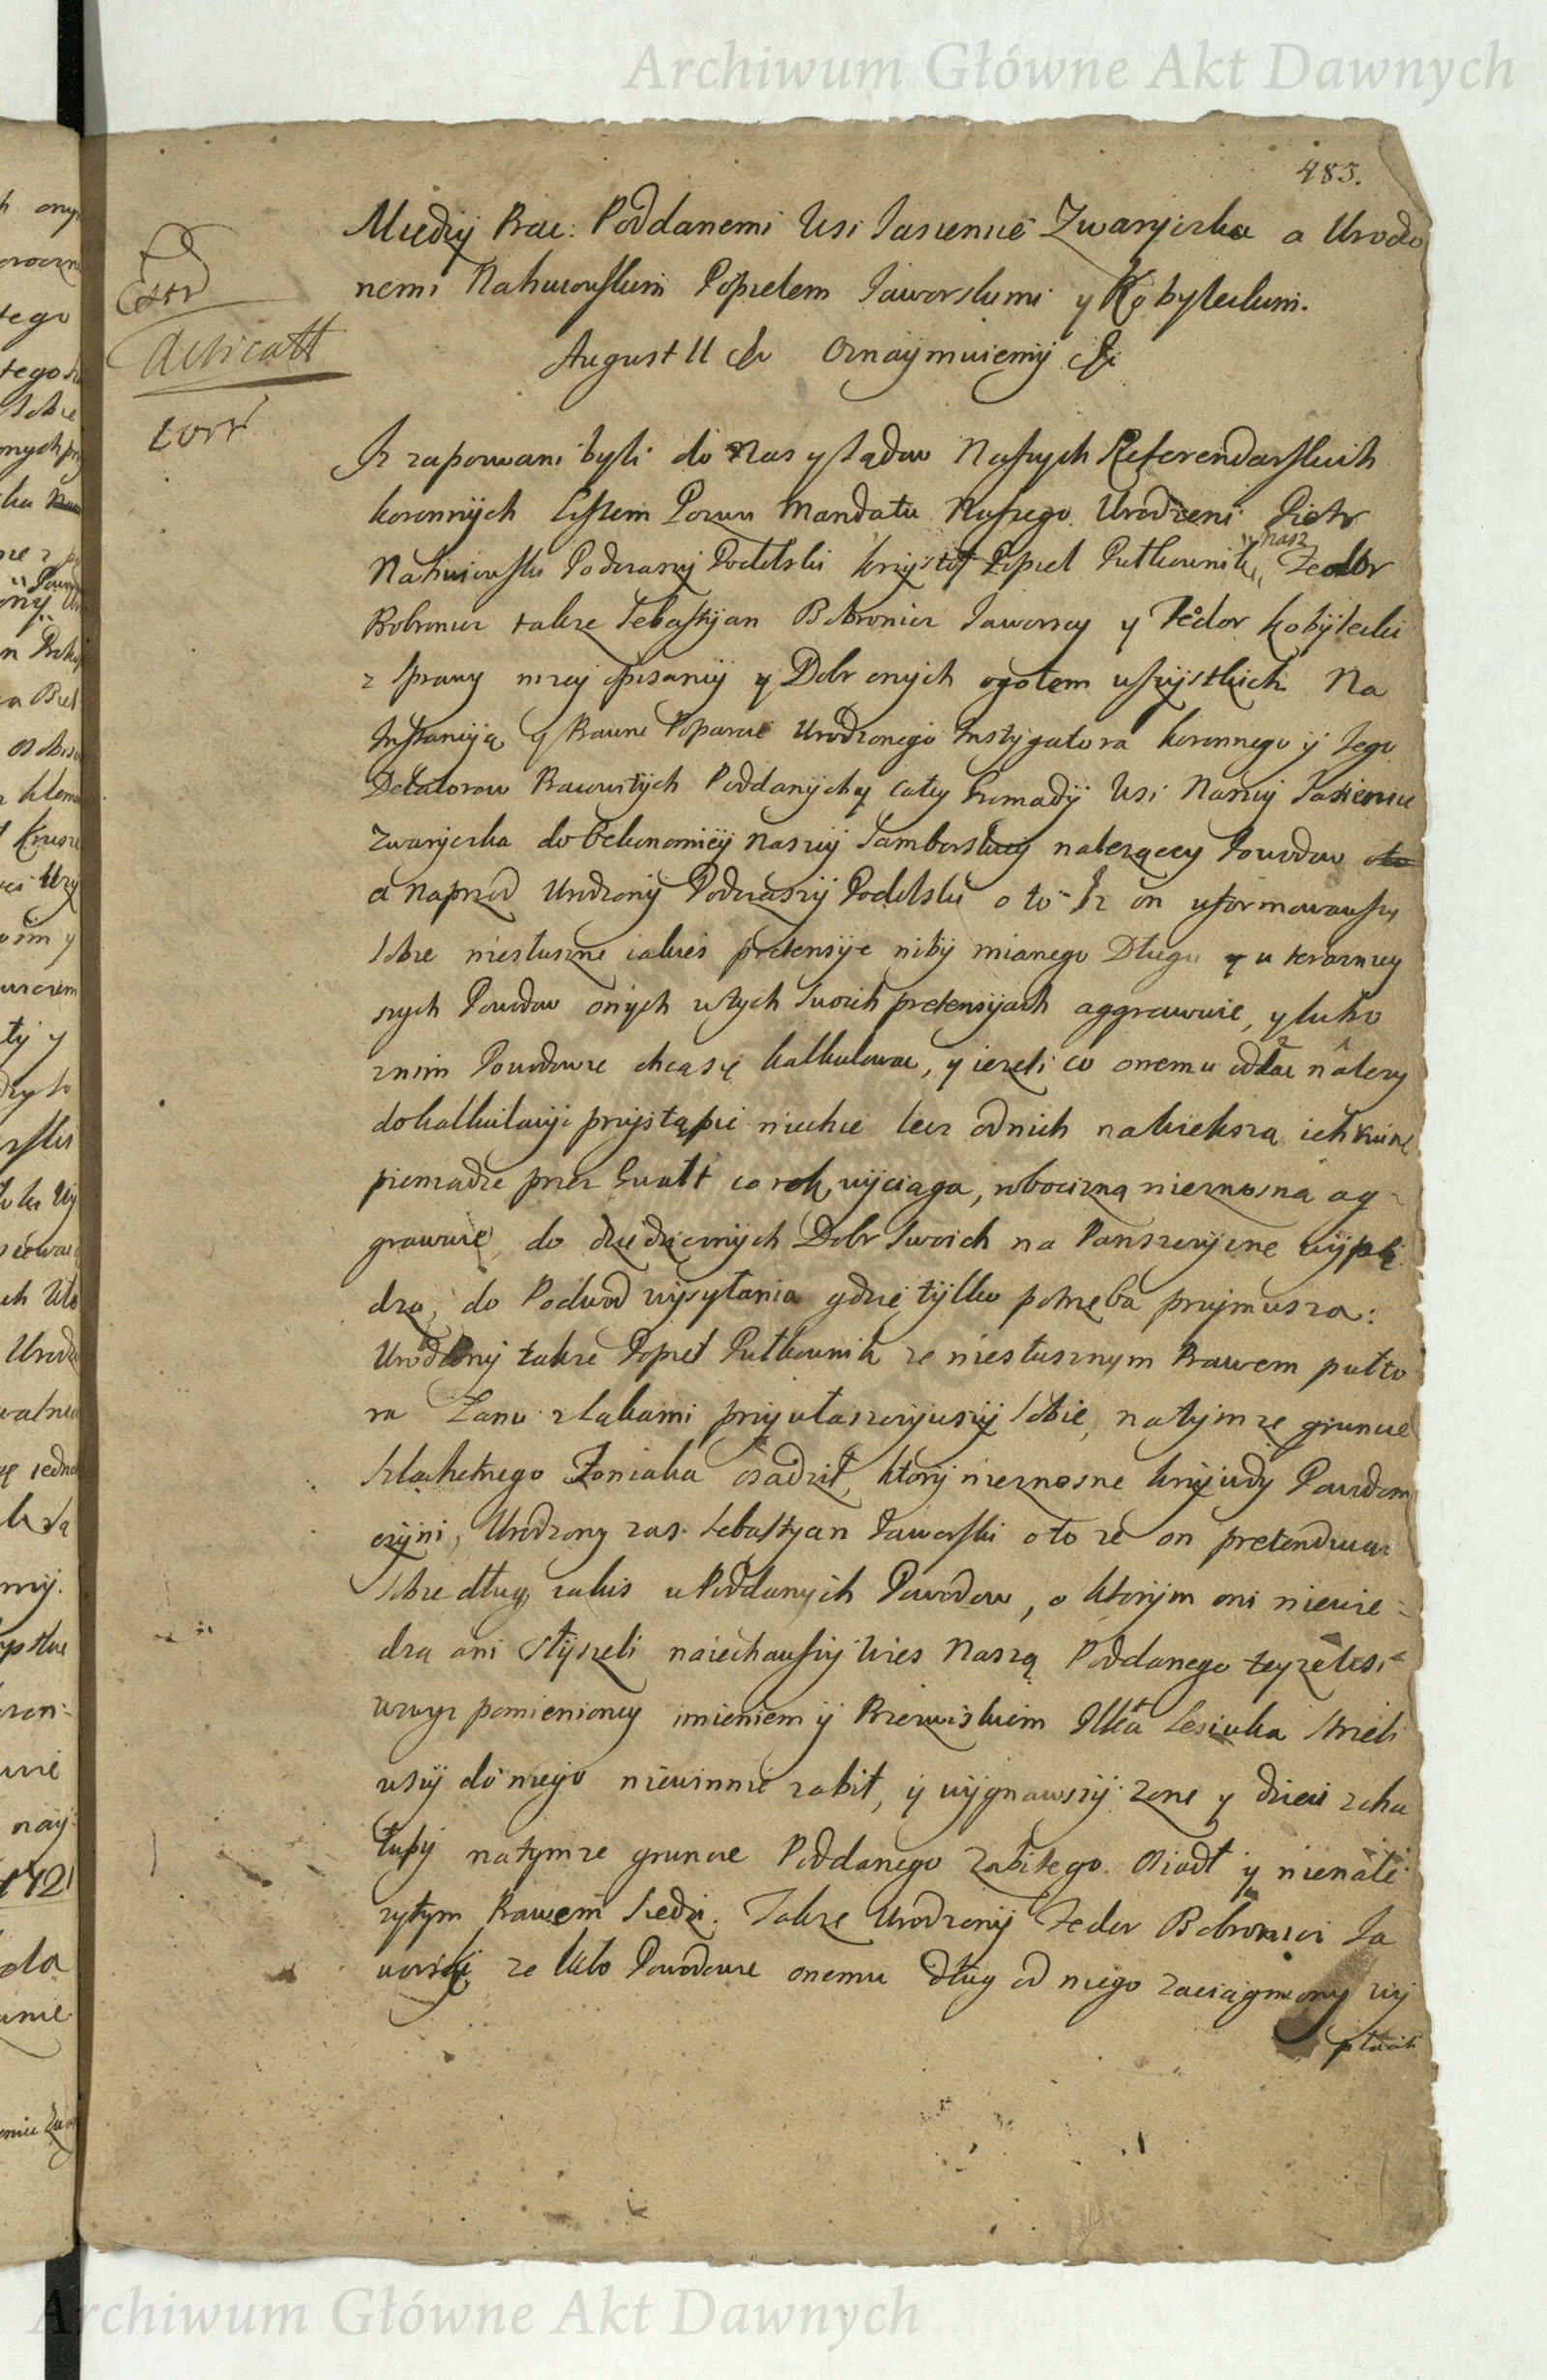 Archiwum Główne Akt Dawnych
483.
Miedzy Prac: Poddanemi Wsi Jasienice Zwaryczka a Urodzo
nemi Nahuiowskim Popielem Jaworskimi y Kobyleckim.
August II etc Oznaymuiemy etc
Extr
corr
Jz zapozwani byli do Nas y Sądow Naszych Referendarskich
koronnych Listem Pozwu Mandatu Naszego Urodzeni Piotr
Nahuiowski Podczaszy Podolski Krzysztof Popiel Pułkownik nasz Fedor
Bobronicz także Sebastyan Bobronicz Jaworscy y Fedor Kobylecki
z Sprawy nizey opisaney y Dobr onych ogołem wszystkich Na
Instancyją y Prawne Poparcie Urodzonego Instygatora koronnego y Jego
Delatorow Pracowitych Poddanych y całey Gromady Wsi Naszey Jasienice
Zwaryczka do Oekonomiey Naszey Samborskiey nalezącey Powodow
a Naprzod Urodzony Podczaszy Podolski o to Jz on uformowawszy
Sobie niesłuszne iakies pretensye niby mianego Długu y u terazniey
szych Powodow onych w tych Swoich pretensyach aggrawuie, y lubo
z nim Powodowie chcą się kalkulowac, y iezeli co onemu oddac nalezy
do kalkulacyi przystąpic niechce lecz od nich na wieksza ich ruine
pieniadze przez Gwałt co rok wyciąga, robocizną nieznosna ag-
grawuie, do dziedzicznych Dobr Swoich na Panszczyzne wypę
dza, do Podwod wysyłania gdzie tylko potrzeba przymusza:
Urodzony także Popiel Pułkownik ze niesłusznym Prawem pułto
ra Łanu z Łąkami przywłaszczywszy Sobie, na tymze gruncie
Szlachetnego Żoniaka osadził, ktory nieznosne krzywdy Powodom
czyni, Urodzony zas Sebastyan Jaworski o to ze on pretenduiąc
Sobie dług iakis u Poddanych Powodow, o ktorym oni niewie-
dzą ani słyszeli naiechawszy Wies Naszą Poddanego teyze Wsi
wzwyz pomienioney imieniem y Przezwiskiem Ilka Lesiuka Strzeli
wszy do niego niewinnie zabił, y wygnawszy zone y dzieci z cha
łupy na tymze gruncie Poddanego Zabitego. Osiadł y nienale
zytym Prawem Siedzi. Także Urodzony Fedor Bobronicz Ja
worski ze lubo Powodowie onemu dług od niego zaciągniony wy
płacili
Archiwum Główne Akt Dawnych